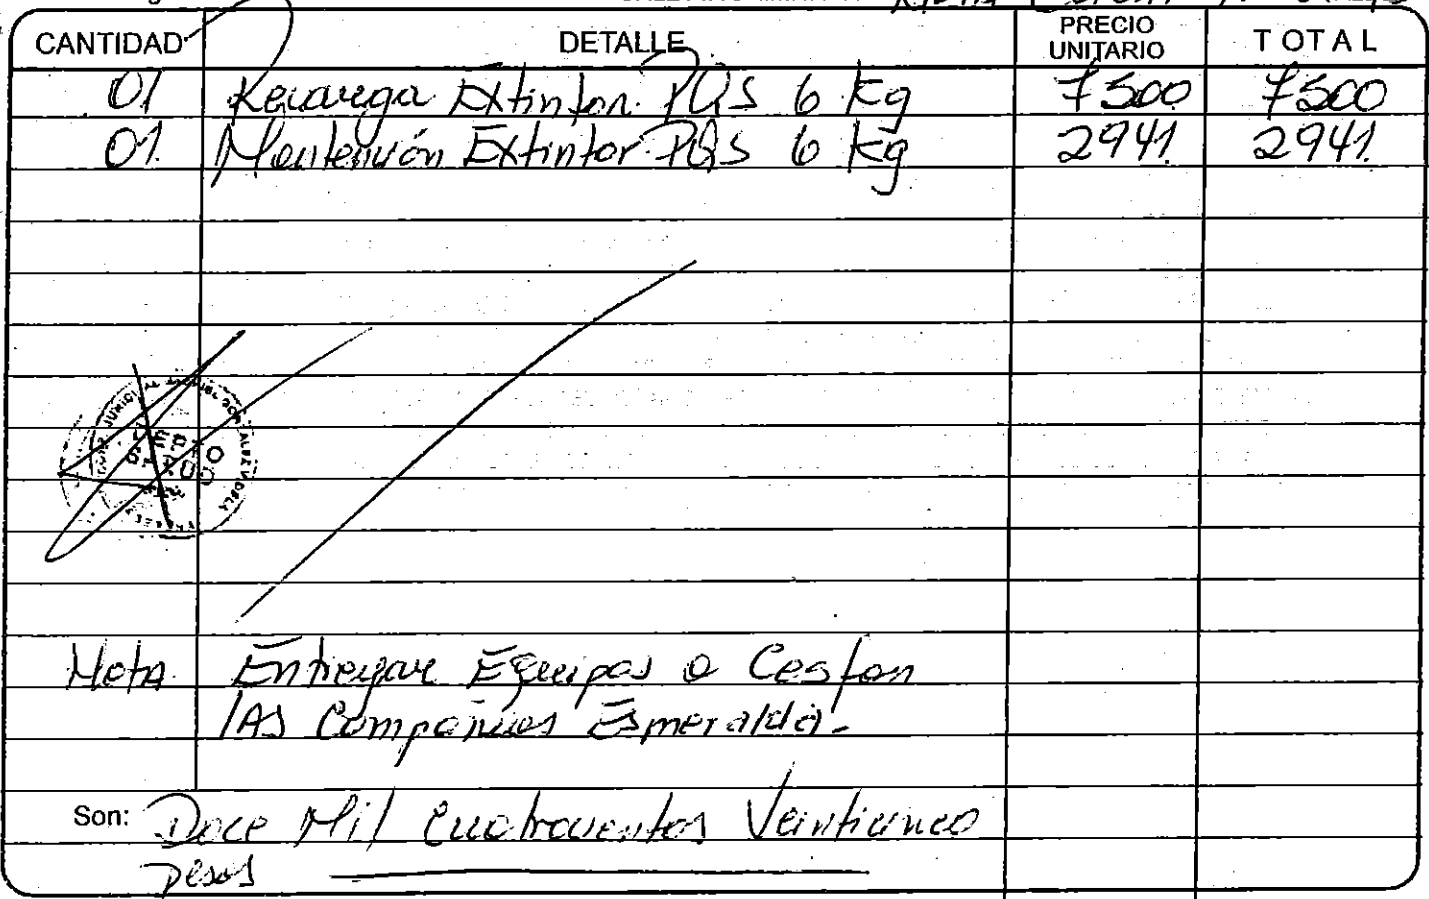 CANTIDAD DETALLE PRECIO UNITARIO TOTAL
01 Recarga Extintor PQS 6 Kg 7500 7500
01 Mantención Extintor PQS 6 Kg 2941 2941
Nota Entregar Equipos a Cesfan
las Compañias Esmeralda.-
Son: Doce Mil Cuatrocientos Veinticinco
pesos